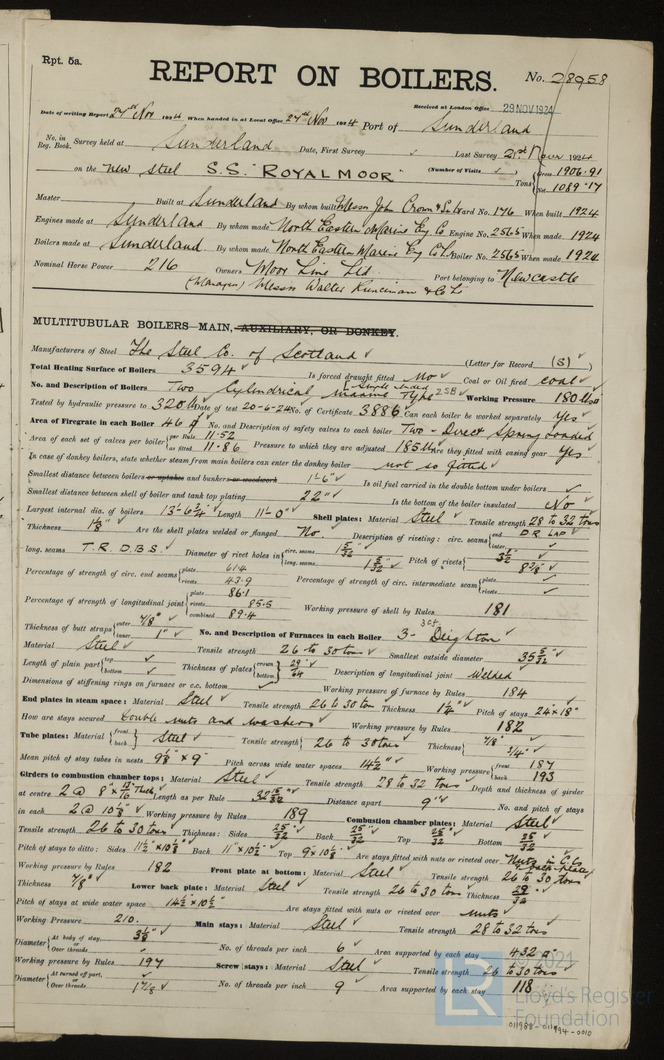 Rpt. 5a.
REPORT ON BOILERS.
No. 28958
Received at London Office 29 NOV 1924
Date of writing Report 27th Nov 1924 When handed in at Local Office 27th Nov 1924 Port of Sunderland
No. in Reg. Book. Survey held at Sunderland Date, First Survey ✓ Last Survey 21st Nov 1924
on the New Steel S.S. "ROYALMOOR" (Number of Visits ✓ ) Tons { Gross 1906.91 Net 1089.17
Master Built at Sunderland By whom built Messrs John Crown & Sons Ld Yard No. 176 When built 1924
Engines made at Sunderland By whom made North Eastern Marine Eng Co Engine No. 2565 When made 1924
Boilers made at Sunderland By whom made North Eastern Marine Eng Co Ld Boiler No. 2565 When made 1924
Nominal Horse Power 216 Owners Moor Line Ltd. Port belonging to Newcastle
(Managers) Messrs Walter Runciman & Co Ld
MULTITUBULAR BOILERS MAIN, AUXILIARY, OR DONKEY.
Manufacturers of Steel The Steel Co. of Scotland ✓ (Letter for Record (S) ✓ )
Total Heating Surface of Boilers 3594 ✓ Is forced draught fitted No ✓ Coal or Oil fired coal ✓
No. and Description of Boilers Two Cylindrical Marine Type Single ended 2SB Working Pressure 180 lbs
Tested by hydraulic pressure to 320 lb Date of test 20-6-24 No. of Certificate 3886 Can each boiler be worked separately Yes ✓
Area of Firegrate in each Boiler 46 No. and Description of safety valves to each boiler Two - Direct Spring loaded
Area of each set of valves per boiler { per Rule 11.52 as fitted 11.86 Pressure to which they are adjusted 185 lbs Are they fitted with easing gear Yes ✓
In case of donkey boilers, state whether steam from main boilers can enter the donkey boiler not so fitted ✓
Smallest distance between boilers or uptakes and bunkers or woodwork 1'-6" ✓ Is oil fuel carried in the double bottom under boilers ✓
Smallest distance between shell of boiler and tank top plating 22" ✓ Is the bottom of the boiler insulated No ✓
Largest internal dia. of boilers 13'-6 3/4" ✓ Length 11'-0" ✓ Shell plates: Material Steel ✓ Tensile strength 28 to 32 tons
Thickness 1 1/8" ✓ Are the shell plates welded or flanged No ✓ Description of riveting: circ. seams { end D.R. LAP ✓ inter. ✓
long. seams T.R.D.B.S. ✓ Diameter of rivet holes in { circ. seams 1 5/32 long. seams 1 5/32 ✓ Pitch of rivets { 3 1/2" ✓ 8 3/8" ✓
Percentage of strength of circ. end seams { plate 61.4 rivets 43.9 Percentage of strength of circ. intermediate seam { plate ✓ rivets ✓
Percentage of strength of longitudinal joint { plate 86.1 rivets 85.5 combined 89.4 Working pressure of shell by Rules 181
Thickness of butt straps { outer 7/8" ✓ inner 1" ✓ No. and Description of Furnaces in each Boiler 3 - Deighton ✓
Material Steel ✓ Tensile strength 26 to 30 tons ✓ Smallest outside diameter 35 5/32" ✓
Length of plain part { top ✓ bottom ✓ Thickness of plates { crown bottom 29/64" ✓ Description of longitudinal joint Welded ✓
Dimensions of stiffening rings on furnace or c.c. bottom ✓ Working pressure of furnace by Rules 184
End plates in steam space: Material Steel ✓ Tensile strength 26 to 30 ton Thickness 1 1/4" ✓ Pitch of stays 24" x 18"
How are stays secured Double nuts and washers ✓ Working pressure by Rules 182
Tube plates: Material { front back Steel ✓ Tensile strength { 26 to 30 tons ✓ Thickness { 7/8" ✓ 3/4" ✓
Mean pitch of stay tubes in nests 9 3/8 x 9" Pitch across wide water spaces 14 1/2" ✓ Working pressure { front 187 back 193
Girders to combustion chamber tops: Material Steel ✓ Tensile strength 28 to 32 tons Depth and thickness of girder
at centre 2 @ 8" x 13/16" Thick Length as per Rule 32 15/32 Distance apart 9" ✓ No. and pitch of stays
in each 2 @ 10 1/8" ✓ Working pressure by Rules 189 Combustion chamber plates: Material Steel ✓
Tensile strength 26 to 30 tons ✓ Thickness: Sides 25/32 Back 25/32" ✓ Top 25/32" ✓ Bottom 25/32 ✓
Pitch of stays to ditto: Sides 11 1/2" x 10 1/8" Back 11" x 10 1/2" Top 9" x 10 1/8" Are stays fitted with nuts or riveted over Nuts in C.C. & back plates
Working pressure by Rules 182 Front plate at bottom: Material Steel ✓ Tensile strength 26 to 30 tons
Thickness 7/8" ✓ Lower back plate: Material Steel ✓ Tensile strength 26 to 30 tons Thickness 29/32 ✓
Pitch of stays at wide water space 14 1/2" x 10 1/2" Are stays fitted with nuts or riveted over nuts ✓
Working Pressure 210. Main stays: Material Steel ✓ Tensile strength 28 to 32 tons
Diameter { At body of stay, or Over threads 3 1/8" ✓ No. of threads per inch 6 ✓ Area supported by each stay 432 ✓
Working pressure by Rules 197 Screw stays: Material Steel ✓ Tensile strength 26 to 30 tons ✓
Diameter { At turned off part, or Over threads 1 7/8" ✓ No. of threads per inch 9 Area supported by each stay 118
© 2021
LR
Lloyd's Register
Foundation
011988-011994-0010